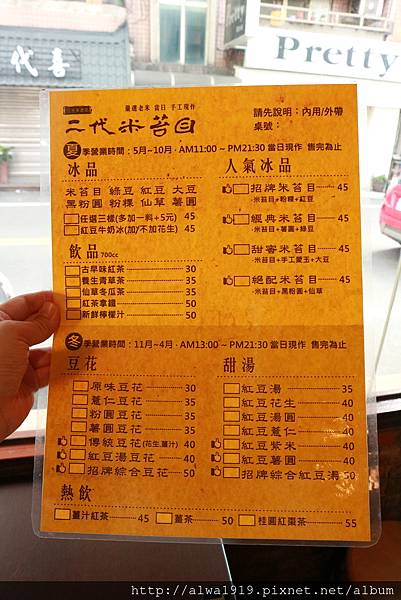 代喜
Pretty
嚴選老米 當日 手工現作
二代米苔目
請先說明：內用/外帶
桌號：
夏季營業時間：5月~10月‧AM11:00 ~ PM21:30 當日現作 售完為止
冰品
米苔目 綠豆 紅豆 大豆
黑粉圓 粉粿 仙草 薯圓
任選三樣(多加一料+5元) 45
紅豆牛奶冰(加/不加花生) 45
飲品 700cc
古早味紅茶 30
養生青草茶 35
仙草冬瓜茶 35
紅茶拿鐵 50
新鮮檸檬汁 50
人氣冰品
招牌米苔目 45
‧米苔目+粉粿+紅豆
經典米苔目 45
‧米苔目+薯圓+綠豆
甜蜜米苔目 45
‧米苔目+手工愛玉+大豆
絕配米苔目 45
‧米苔目+黑粉圓+仙草
冬季營業時間：11月~4月‧AM13:00 ~ PM21:30 當日現作 售完為止
豆花
原味豆花 30
薏仁豆花 35
粉圓豆花 35
薯圓豆花 35
傳統豆花(花生.薑汁) 40
紅豆湯豆花 40
招牌綜合豆花 50
甜湯
紅豆湯 35
紅豆花生 40
紅豆湯圓 40
紅豆薏仁 40
紅豆紫米 40
紅豆薯圓 40
招牌綜合紅豆湯 50
熱飲
薑汁紅茶 45
薑茶 50
桂圓紅棗茶 55
http://alwa1919.pixnet.net/album